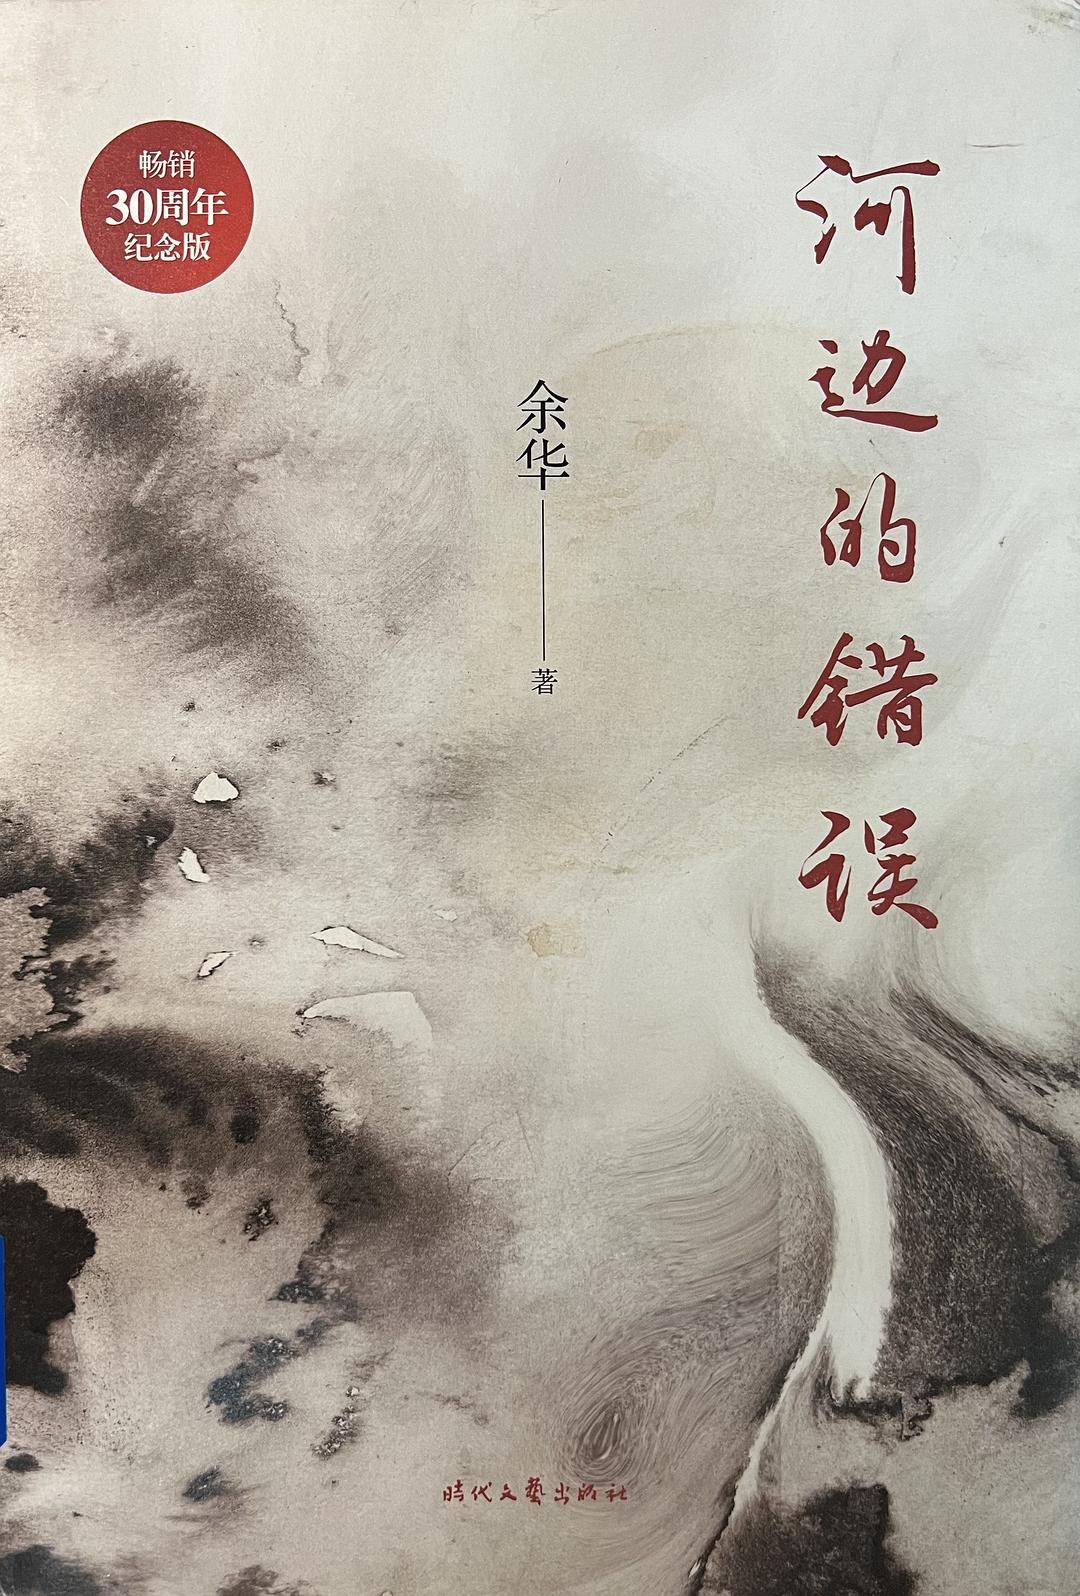 畅销
30周年
纪念版
河边的错误
余华
著
時代文藝出版社